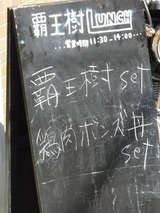 覇王樹LUNCH
...営業時間 11:30-14:00...
覇王樹set
鶏肉ポンズ丼
set